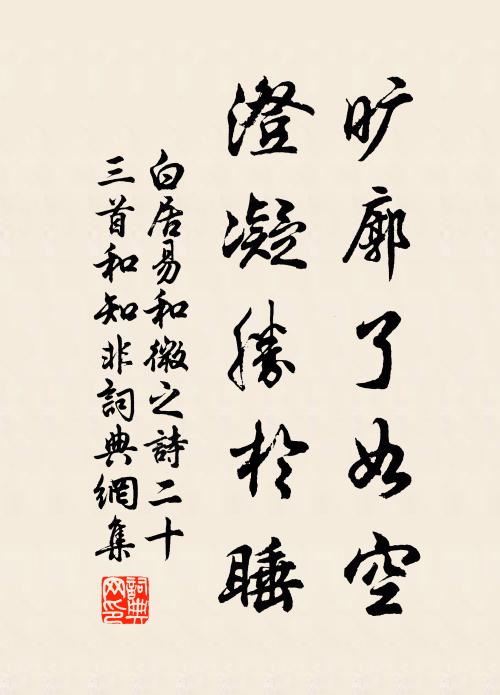 旷廓了如空
澄凝勝於睡
白居易和微之詩二十
三首和知非詞典網集
詞典网印